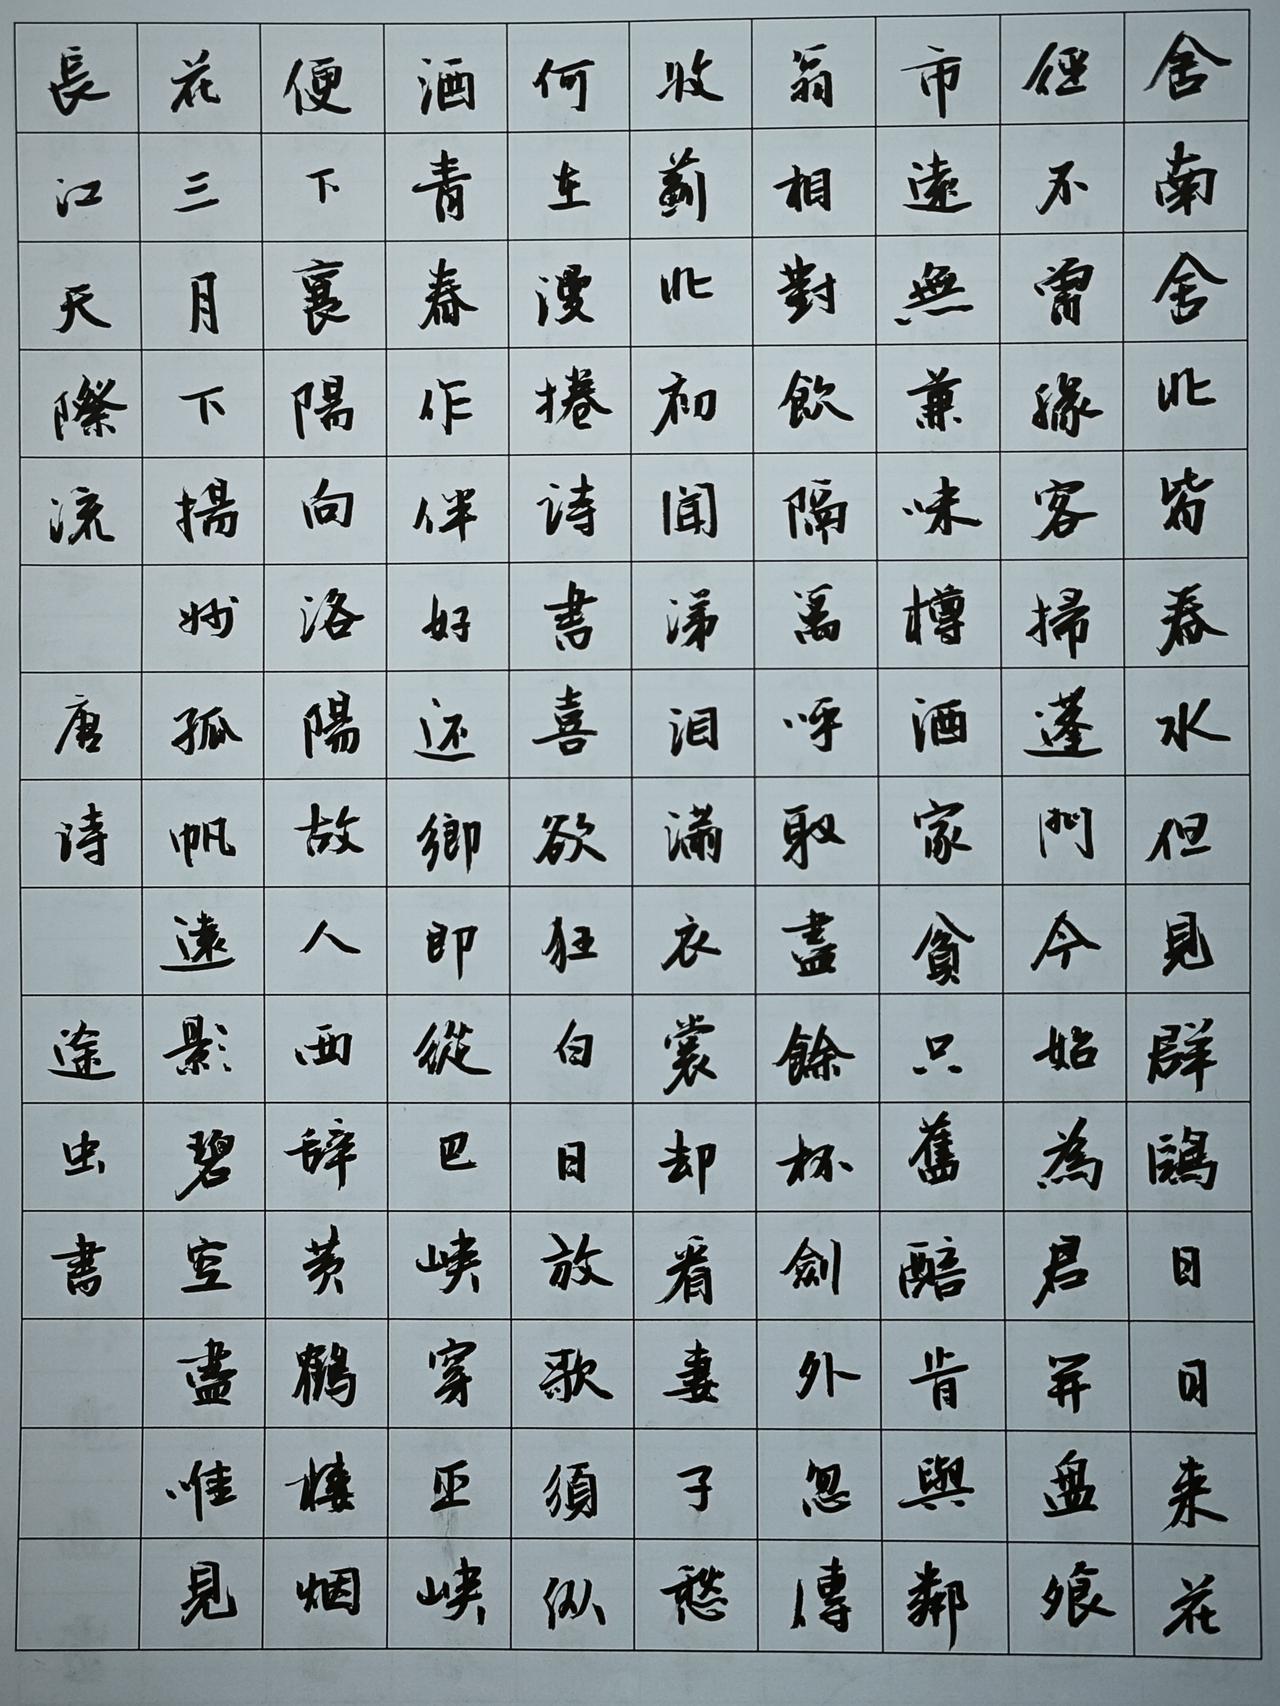 舍南舍北皆春水但見群鷗日日来花
徑不曾緣客掃蓬門今始為君开盘飧
市遠無兼味樽酒家貧只舊醅肯與鄰
翁相對飲隔篱呼取盡餘杯劍外忽傳
收薊北初聞涕泪滿衣裳却看妻子愁
何在漫捲诗書喜欲狂白日放歌須纵
酒青春作伴好还鄉即從巴峽穿巫峽
便下襄陽向洛陽故人西辞黄鶴樓烟
花三月下揚州孤帆遠影碧空盡唯見
長江天際流 唐诗 途虫書